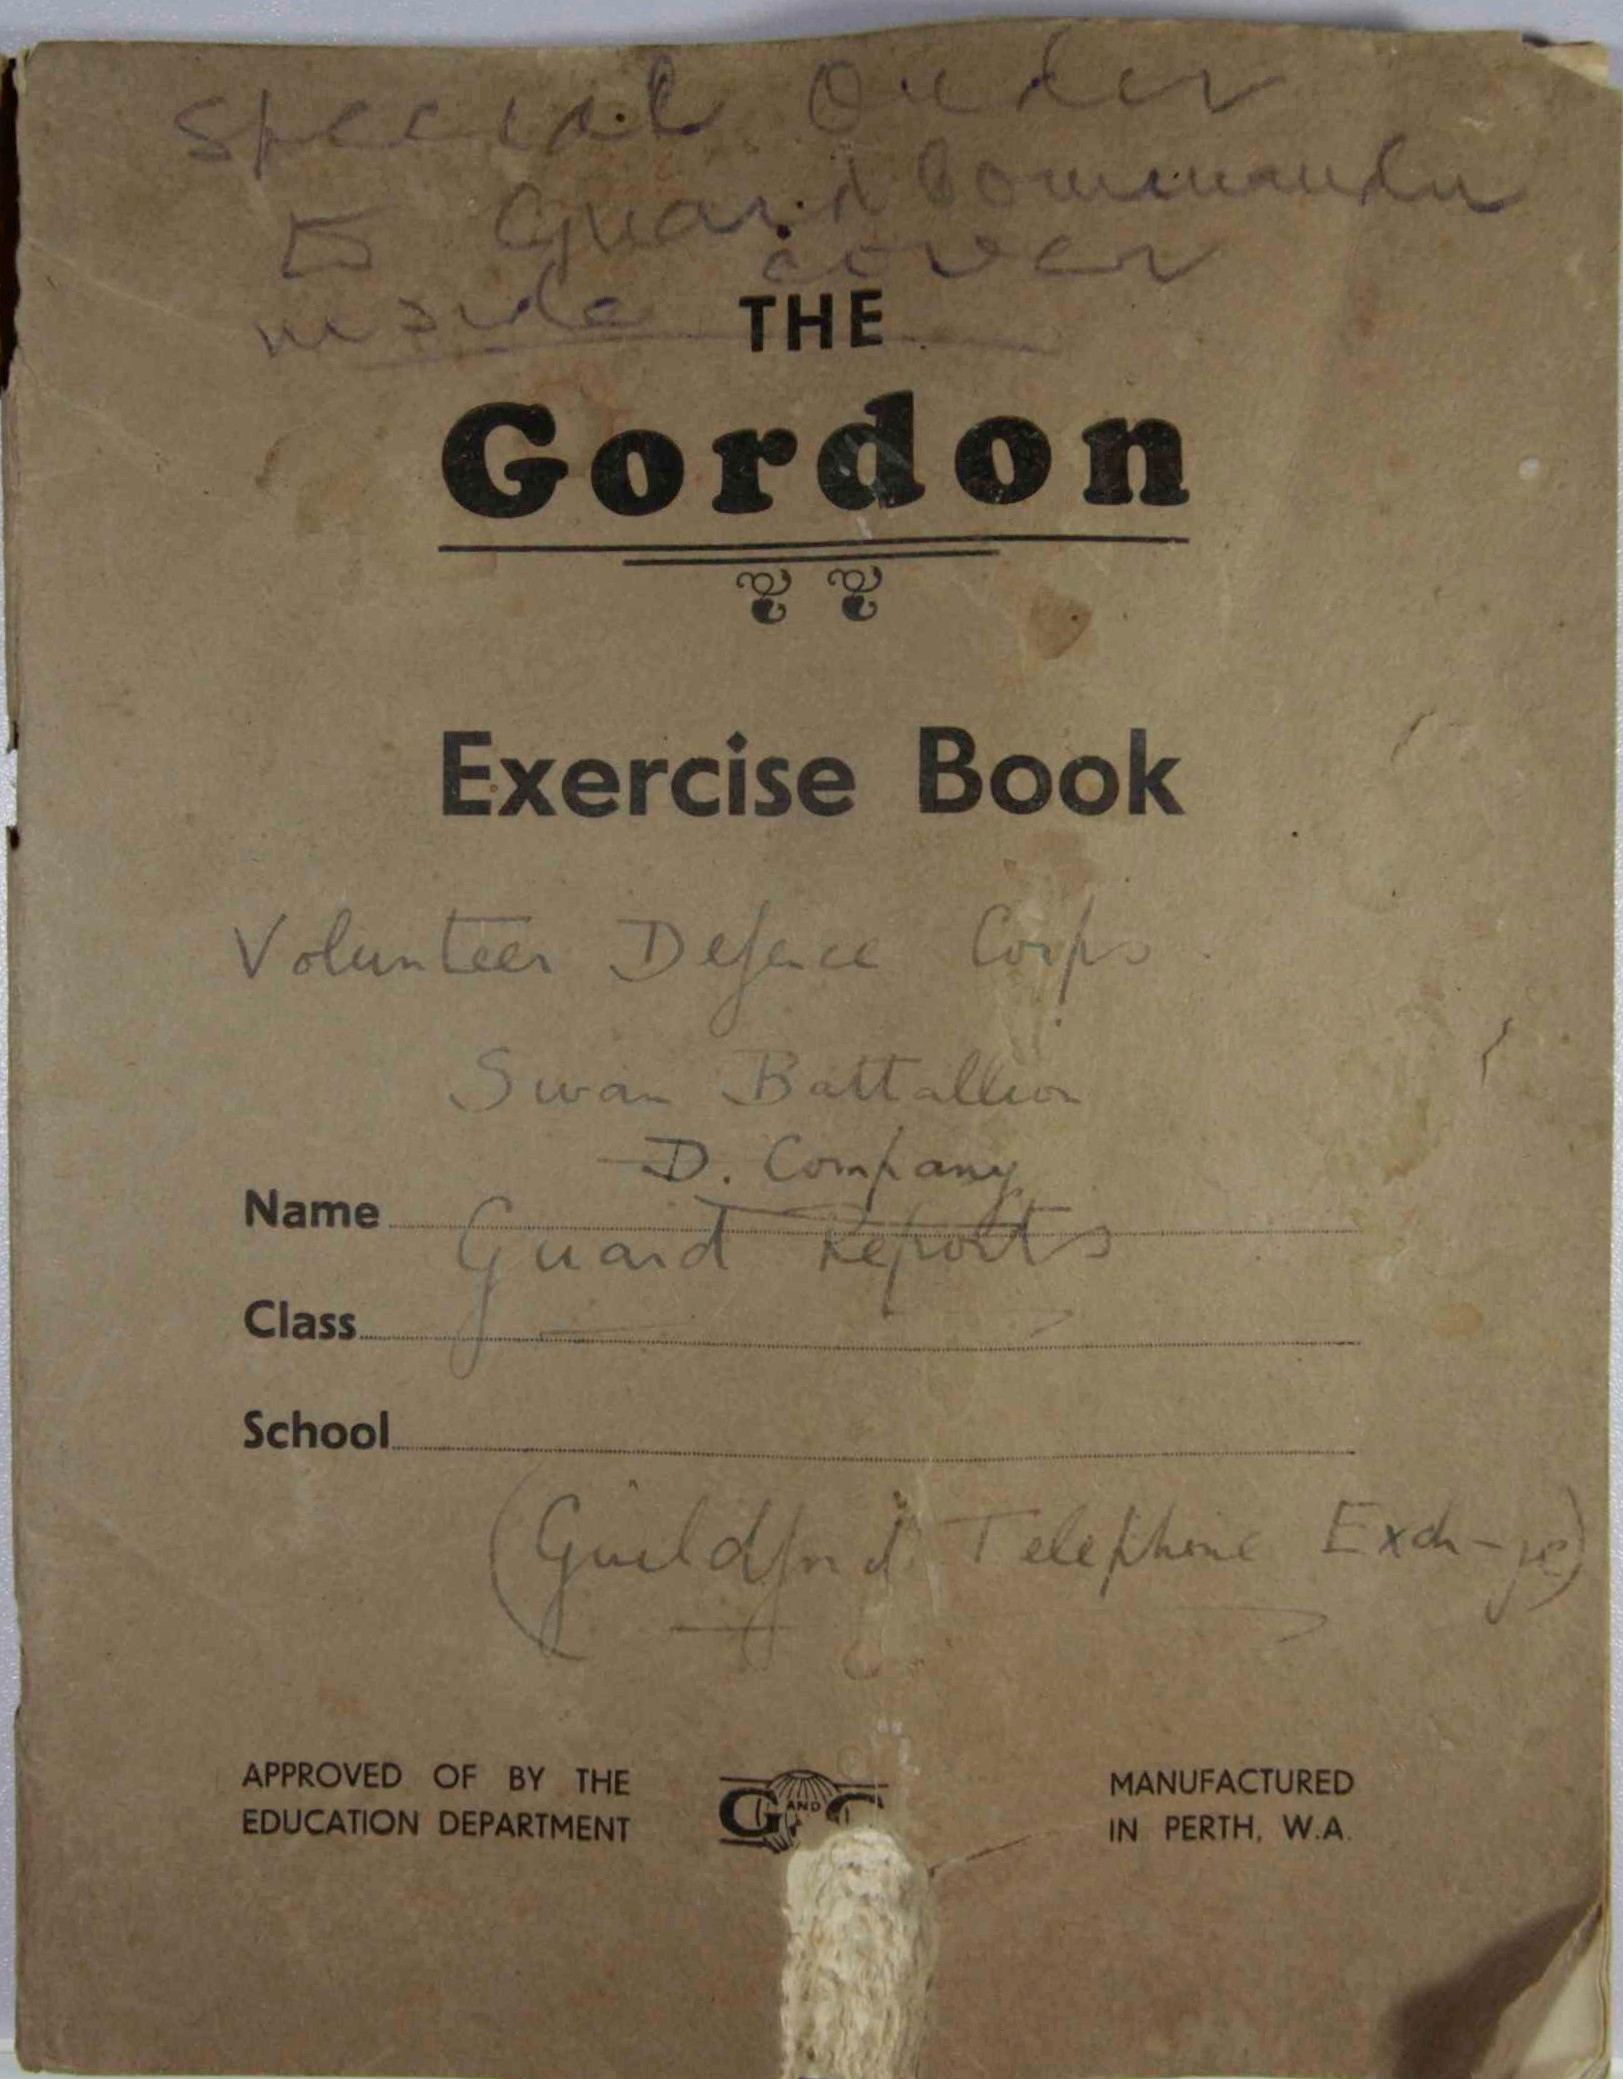 Special Order
to Guard Commander
inside cover
THE
Gordon
Exercise Book
Volunteer Defence Corps.
Swan Battallion
D. Company
Name
Guard Reports
Class
School
(Guildford Telephone Exch-ge)
APPROVED OF BY THE
EDUCATION DEPARTMENT
G AND G
MANUFACTURED
IN PERTH, W.A.